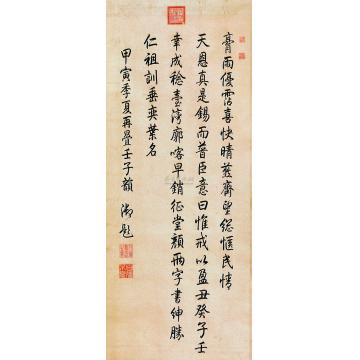 膏雨優霑喜快晴茲齋望總愜民情
天恩真是錫而普臣意曰惟戒以盈丑癸子壬
幸成稔臺濟廓喀早銷征堂顏兩字書紳勝
仁祖訓垂奕葉名
甲寅季夏再疊壬子韻 御題